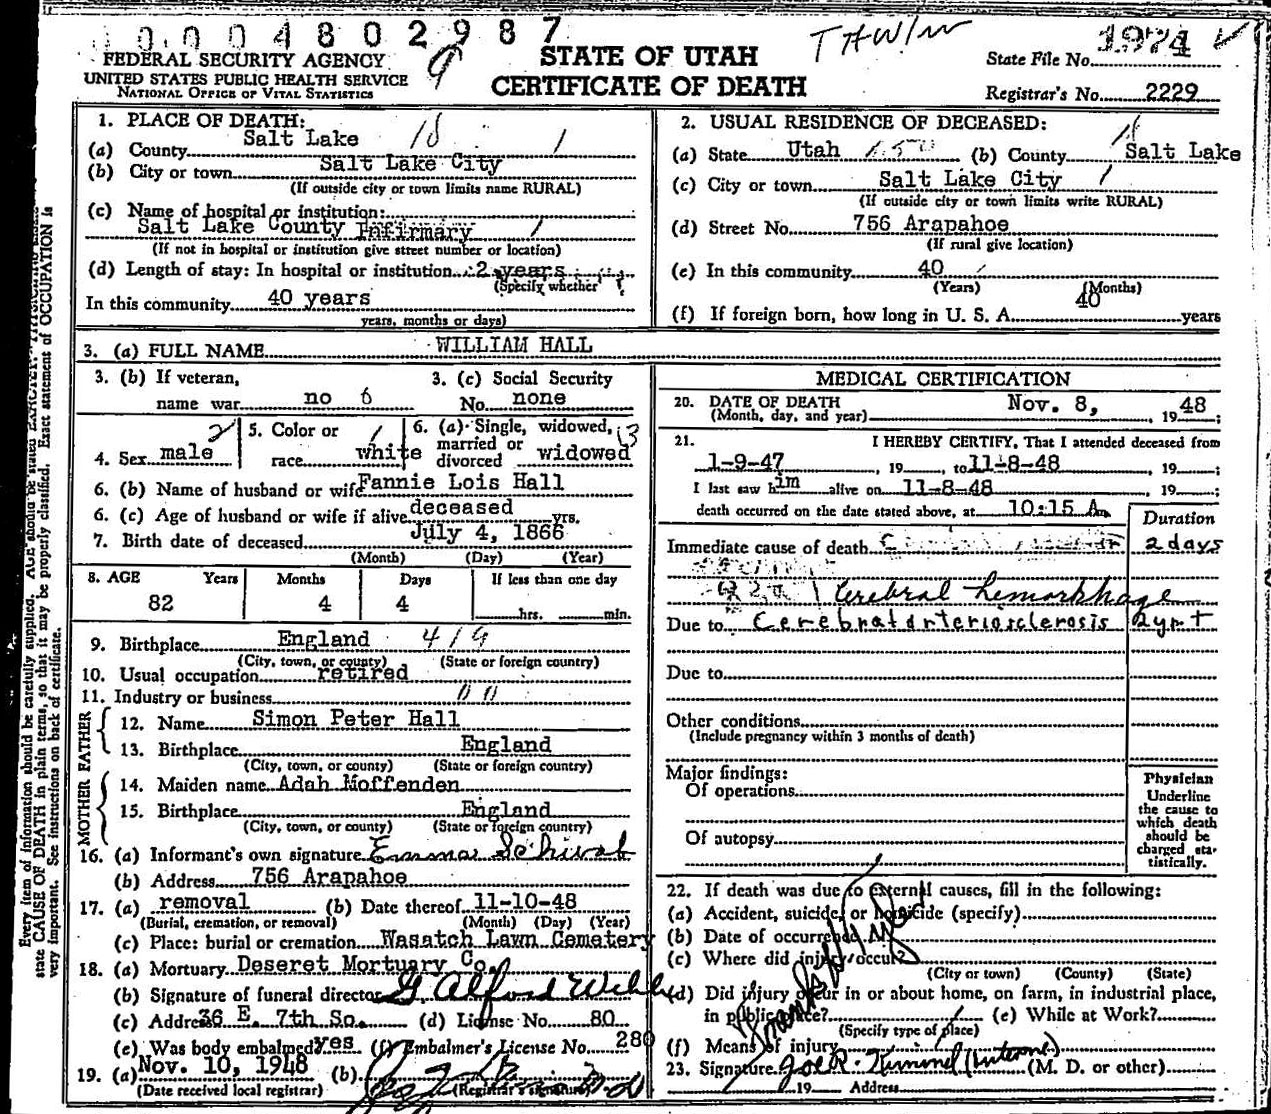 0 0 0 4 8 0 2 9 8 7
FEDERAL SECURITY AGENCY
UNITED STATES PUBLIC HEALTH SERVICE
NATIONAL OFFICE OF VITAL STATISTICS
9
STATE OF UTAH
CERTIFICATE OF DEATH
State File No. 1974
Registrar's No. 2229
1. PLACE OF DEATH:
(a) County Salt Lake 18 1
(b) City or town Salt Lake City
(If outside city or town limits name RURAL)
(c) Name of hospital or institution:
Salt Lake County Infirmary 1
(If not in hospital or institution give street number or location)
(d) Length of stay: In hospital or institution 2 years
(Specify whether
In this community 40 years
years, months or days)
2. USUAL RESIDENCE OF DECEASED:
(a) State Utah (b) County Salt Lake
(c) City or town Salt Lake City 1
(If outside city or town limits write RURAL)
(d) Street No. 756 Arapahoe
(If rural give location)
(e) In this community 40
(Years) (Months)
(f) If foreign born, how long in U. S. A. 40 years
3. (a) FULL NAME WILLIAM HALL
3. (b) If veteran, name war no 6
3. (c) Social Security No. none
4. Sex male 2
5. Color or race white 1
6. (a) Single, widowed, married or divorced widowed 13
6. (b) Name of husband or wife Fannie Lois Hall
6. (c) Age of husband or wife if alive deceased yrs.
7. Birth date of deceased July 4, 1866
(Month) (Day) (Year)
8. AGE Years Months Days If less than one day
82 4 4 hrs. min.
9. Birthplace England 419
(City, town, or county) (State or foreign country)
10. Usual occupation retired
11. Industry or business 00
FATHER
12. Name Simon Peter Hall
13. Birthplace England
(City, town, or county) (State or foreign country)
MOTHER
14. Maiden name Adah Moffenden
15. Birthplace England
(City, town, or county) (State or foreign country)
16. (a) Informant's own signature Emma
(b) Address 756 Arapahoe
17. (a) removal (b) Date thereof 11-10-48
(Burial, cremation, or removal) (Month) (Day) (Year)
(c) Place: burial or cremation Wasatch Lawn Cemetery
18. (a) Mortuary Deseret Mortuary Co.
(b) Signature of funeral director G Alford
(c) Address 36 E. 7th So. (d) License No. 80
(e) Was body embalmed? yes (f) Embalmer's License No. 280
19. (a) Nov. 10, 1948 (b)
(Date received local registrar) (Registrar's signature)
MEDICAL CERTIFICATION
20. DATE OF DEATH Nov. 8, 1948;
(Month, day, and year)
21. I HEREBY CERTIFY, That I attended deceased from
1-9-47, 19 , to 11-8-48, 19 ;
I last saw him alive on 11-8-48, 19 ;
death occurred on the date stated above, at 10:15 A m
Duration
Immediate cause of death 2 days
Cerebral hemorkhage
Due to Cerebral arteriosclerosis 2 yr +
Due to
Other conditions
(Include pregnancy within 3 months of death)
Major findings:
Of operations
Of autopsy
Physician
Underline
the cause to
which death
should be
charged sta-
tistically.
22. If death was due to external causes, fill in the following:
(a) Accident, suicide, or homicide (specify)
(b) Date of occurrence
(c) Where did injury occur?
(City or town) (County) (State)
(d) Did injury occur in or about home, on farm, in industrial place,
in public place? (e) While at Work?
(Specify type of place)
(f) Means of injury
23. Signature Joe R. Kimmel (Interne) (M. D. or other)
19 Address
Every item of information should be carefully supplied. AGE should be stated EXACTLY.
state CAUSE OF DEATH in plain terms, so that it may be properly classified. Exact statement of OCCUPATION is
very important. See instructions on back of certificate.